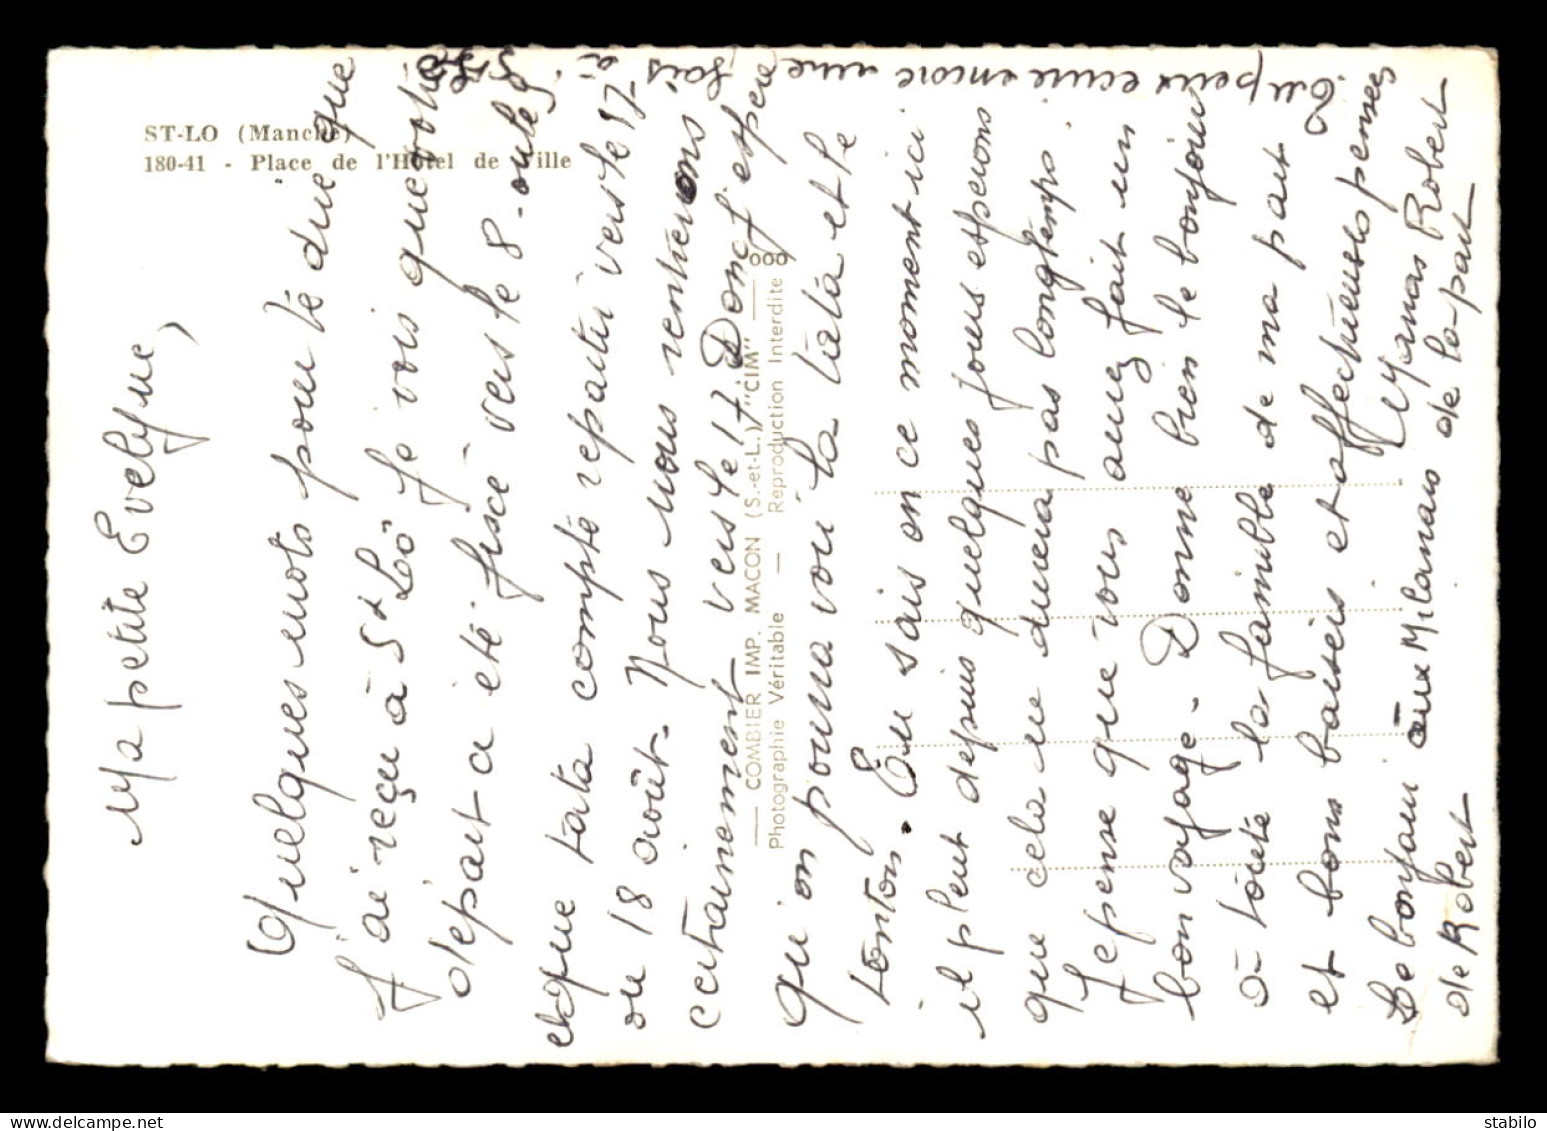 ST-LO (Manche)
180-41 - Place de l'Hôtel de Ville
Ma petite Evelyne,
Quelques mots pour te dire que
j'ai reçu à St Lo je vois que votre
départ a été fixé vers le 8. ou le 9
et que tata compte repartir vers le 17
ou 18 août. Nous nous rentrerons
certainement vers le 17 Donc j'espère
qu'on pourra voir la tata et le
tonton. Tu sais en ce moment ici
il pleut depuis quelques jours esperons
que cela ne durera pas longtemps.
Je pense que vous aurez fait un
bon voyage. Donne bien le bonjour
à toute la famille de ma part
et bons baisers et affectueuses pensées
Le bonjour aux Milanais de la part
de Robert
Robert
Tu peux ecrire encore une fois à
St Lo
— COMBIER IMP. MACON (S.-et-L.) "CIM" —
Photographie Véritable — Reproduction Interdite
stabilo